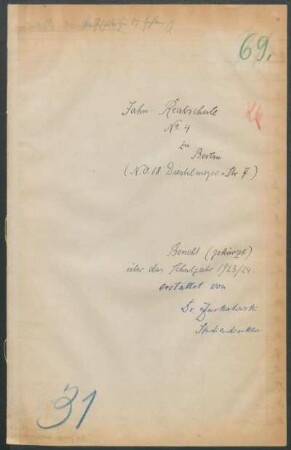 69.
Jahn Realschule
No 4
zu
Berlin
(N.O. 18
Bericht (gekürzt)
über das Schuljahr 1923/24.
erstattet von
Dr.
Studiendirektor
31